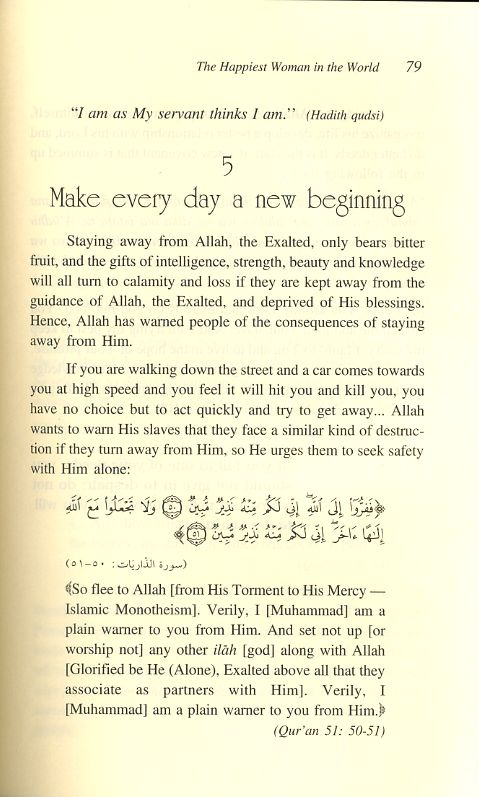 The Happiest Woman in the World 79
"I am as My servant thinks I am." (Hadith qudsi)
5
Make every day a new beginning
Staying away from Allah, the Exalted, only bears bitter
fruit, and the gifts of intelligence, strength, beauty and knowledge
will all turn to calamity and loss if they are kept away from the
guidance of Allah, the Exalted, and deprived of His blessings.
Hence, Allah has warned people of the consequences of staying
away from Him.
If you are walking down the street and a car comes towards
you at high speed and you feel it will hit you and kill you, you
have no choice but to act quickly and try to get away... Allah
wants to warn His slaves that they face a similar kind of destruc-
tion if they turn away from Him, so He urges them to seek safety
with Him alone:
﴿فَفِرُّوٓا۟ إِلَى ٱللَّهِ ۖ إِنِّى لَكُم مِّنْهُ نَذِيرٌ مُّبِينٌ ۝٥٠ وَلَا تَجْعَلُوا۟ مَعَ ٱللَّهِ
إِلَـٰهًا ءَاخَرَ ۖ إِنِّى لَكُم مِّنْهُ نَذِيرٌ مُّبِينٌ ۝٥١﴾
(سورة الذاريات: ٥٠-٥١)
﴾So flee to Allah [from His Torment to His Mercy —
Islamic Monotheism]. Verily, I [Muhammad] am a
plain warner to you from Him. And set not up [or
worship not] any other ilāh [god] along with Allah
[Glorified be He (Alone), Exalted above all that they
associate as partners with Him]. Verily, I
[Muhammad] am a plain warner to you from Him.﴿
(Qur'an 51: 50-51)